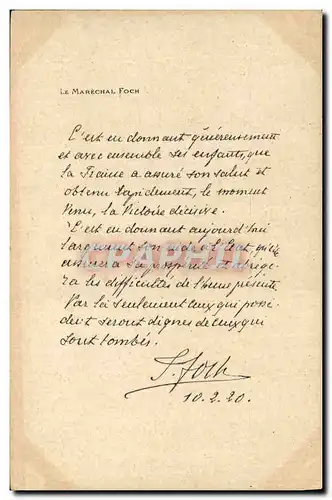 LE MARÉCHAL FOCH
C'est en donnant généreusement
et avec ensemble ses enfants, que
la France a assuré son salut et
obtenu rapidement, le moment
venu, la Victoire décisive.
C'est en donnant aujourd'hui
largement son à l'Etat, qu'elle
assurera sa prospérité
ra les difficultés de l'heure présente.
Par là seulement ceux qui possè
dent seront dignes de ceux qui
sont tombés.
F. Foch
10.2.20.